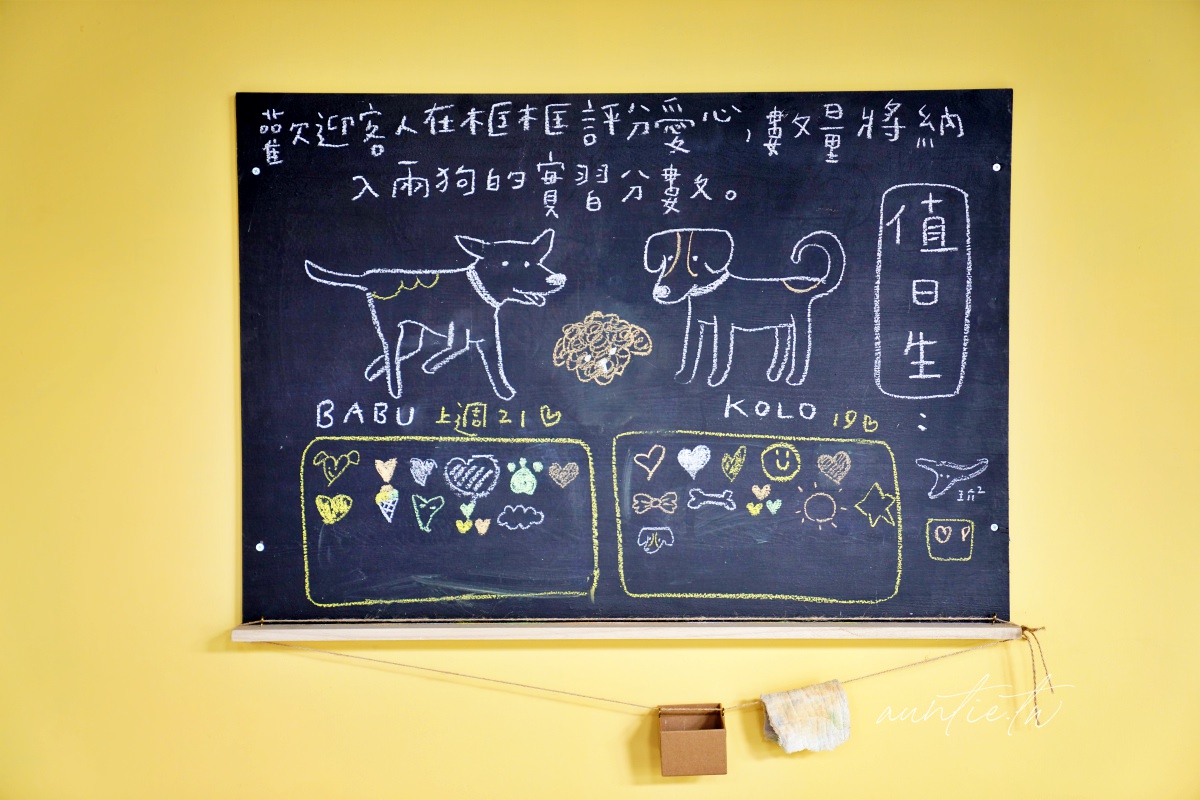 歡迎客人在框框評分愛心，數量將納
入兩狗的實習分數。
值日生：
BABU 上週21
KOLO 19
auntie.tw